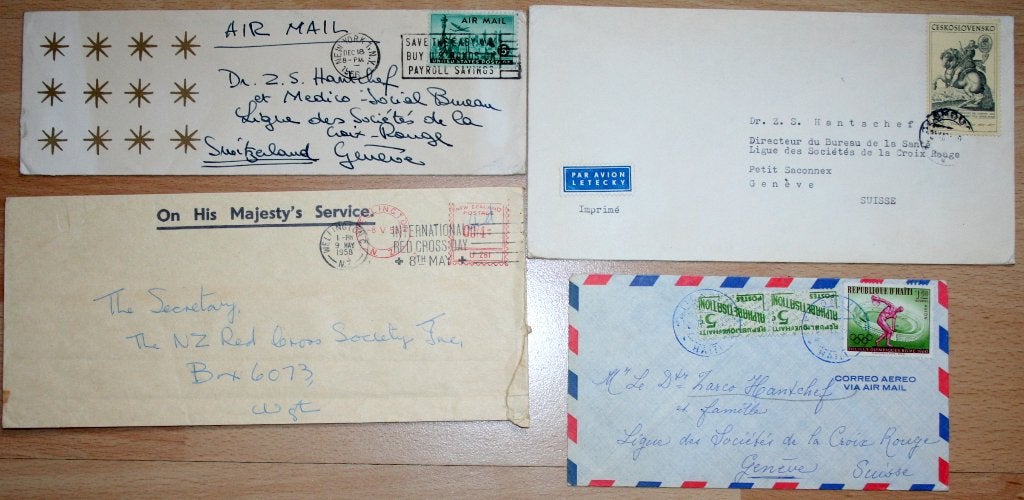 AIR MAIL
NEW YORK, N.Y.
DEC 18
8-PM
SAVE THE EASY WAY
BUY U.S. BONDS
PAYROLL SAVINGS
AIR MAIL
UNITED STATES POSTAGE
Dr. Z. S. Hantchef
et Medico-Social Bureau
Ligue des Sociétés de la
Croix-Rouge
Switzerland Genève
ČESKOSLOVENSKO
Dr. Z. S. Hantschef
Directeur du Bureau de la Santé
Ligue des Sociétés de la Croix Rouge
Petit Saconnex
Genève
SUISSE
PAR AVION
LETECKY
Imprimé
On His Majesty's Service.
WELLINGTON
1-PM
9 MAY
1958
N.Z.
8 V 58
INTERNATIONAL
RED CROSS DAY
8TH MAY
NEW ZEALAND
POSTAGE
The Secretary,
The NZ Red Cross Society Inc,
Box 6073,
Wgt
REPUBLIQUE D'HAITI
ALPHABETISATION
5c
POSTES
REPUBLIQUE D'HAITI
ALPHABETISATION
5c
POSTES
REPUBLIQUE D'HAITI
HAITI
CORREO AEREO
VIA AIR MAIL
Mr Le Dtr Zarco Hantchef
et famille
Ligue des Sociétés de la Croix Rouge
Genève Suisse